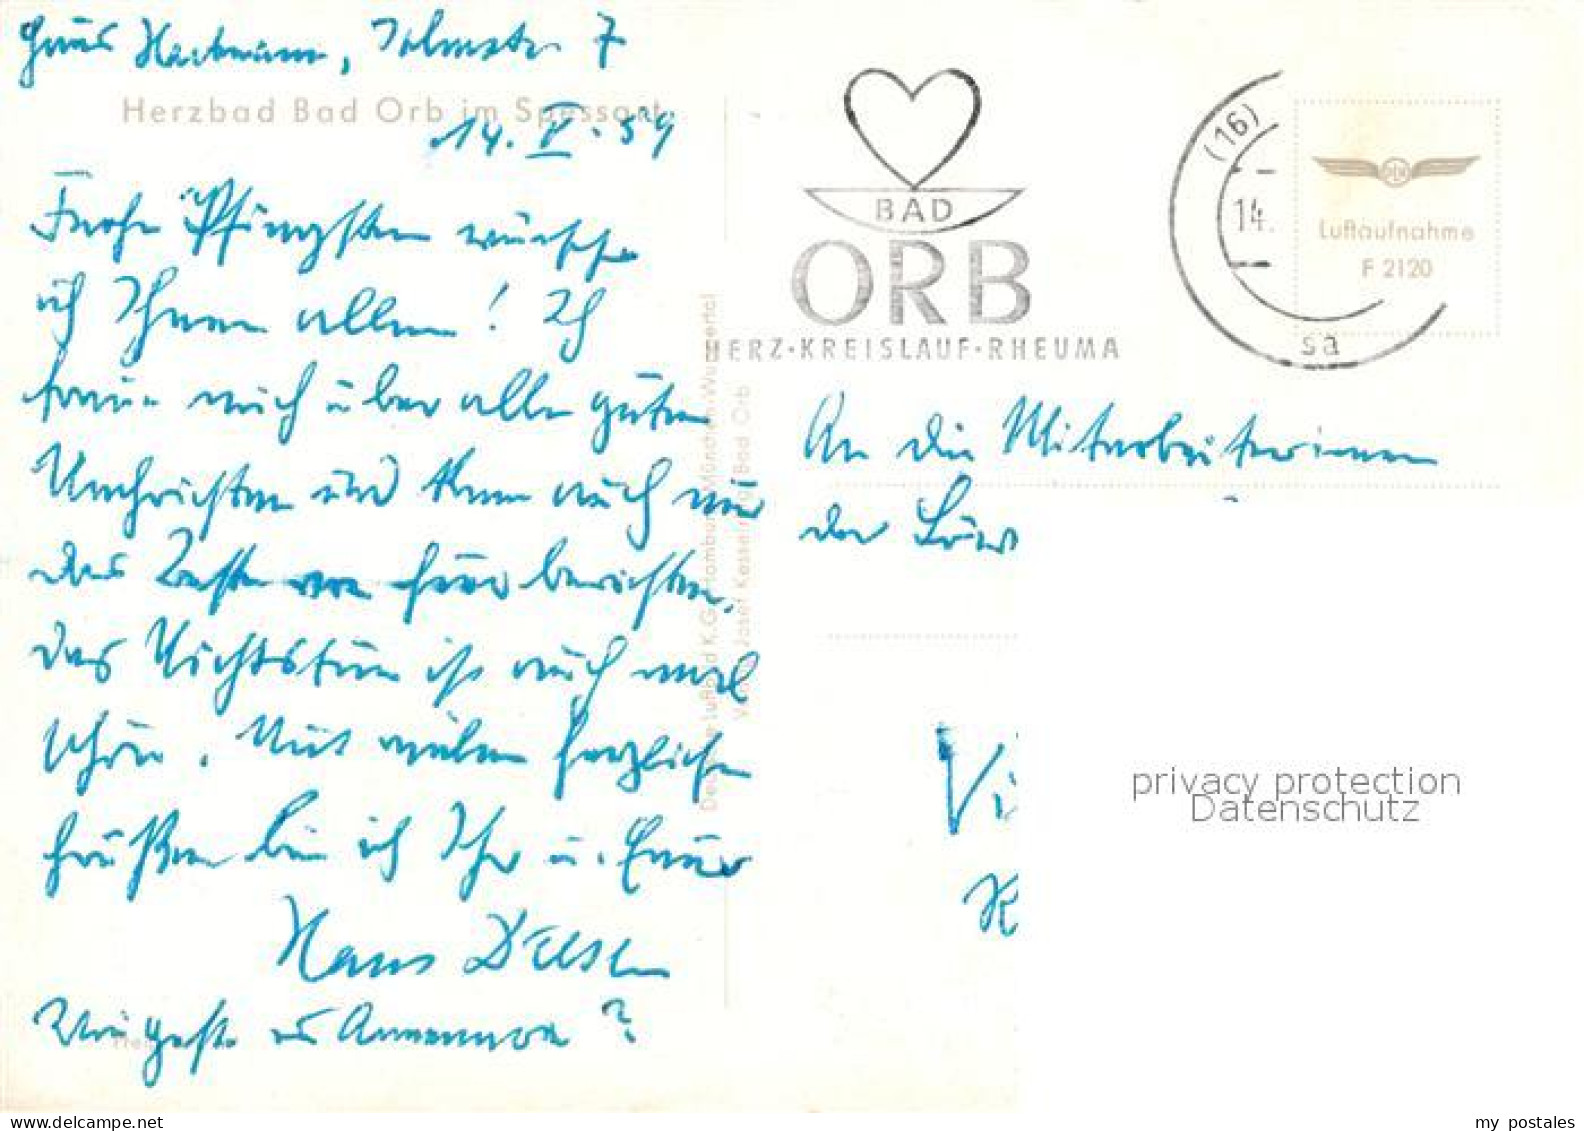 Haus Hartmann,
7
Herzbad Bad Orb im Spessart
14. V. 59
Frohe Pfingsten wünsche
ich Ihnen allen! Ich
freue mich über alle guten
Nachrichten und kann auch nur
das Beste von hier berichten.
Das Nichtstun ist auch mal
schön. Mit vielen herzlichen
Grüßen bin ich Ihr u. Euer
Hans
Wie geht es Annemarie?
Deutsche Luftbild K.G. Hamburg München Wuppertal
Verlag Josef Kessel Bad Orb
BAD
ORB
HERZ·KREISLAUF·RHEUMA
(16)
14.
sa
Luftaufnahme
F 2120
An die Mitarbeiterinnen
der Löw
Vi
K
privacy protection
Datenschutz
www.delcampe.net
my_postales